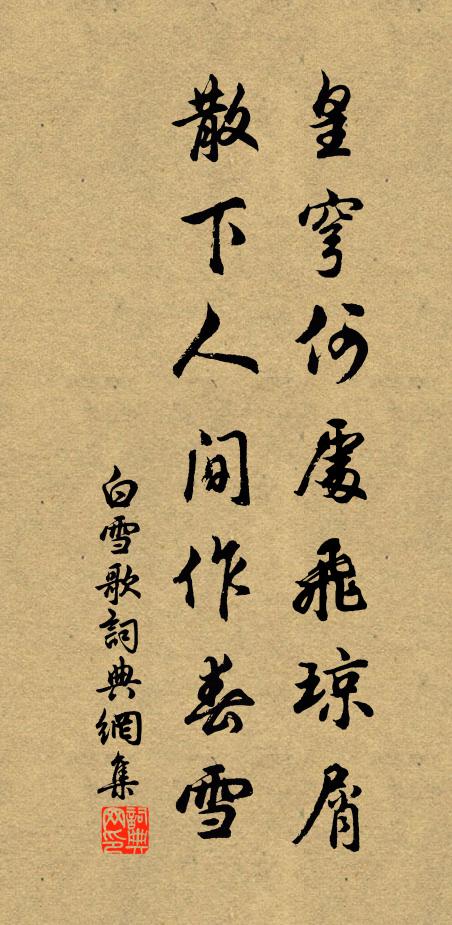 皇穹何處飛琼屑
散下人间作春雪
白雪歌詞典網集
詞典網印